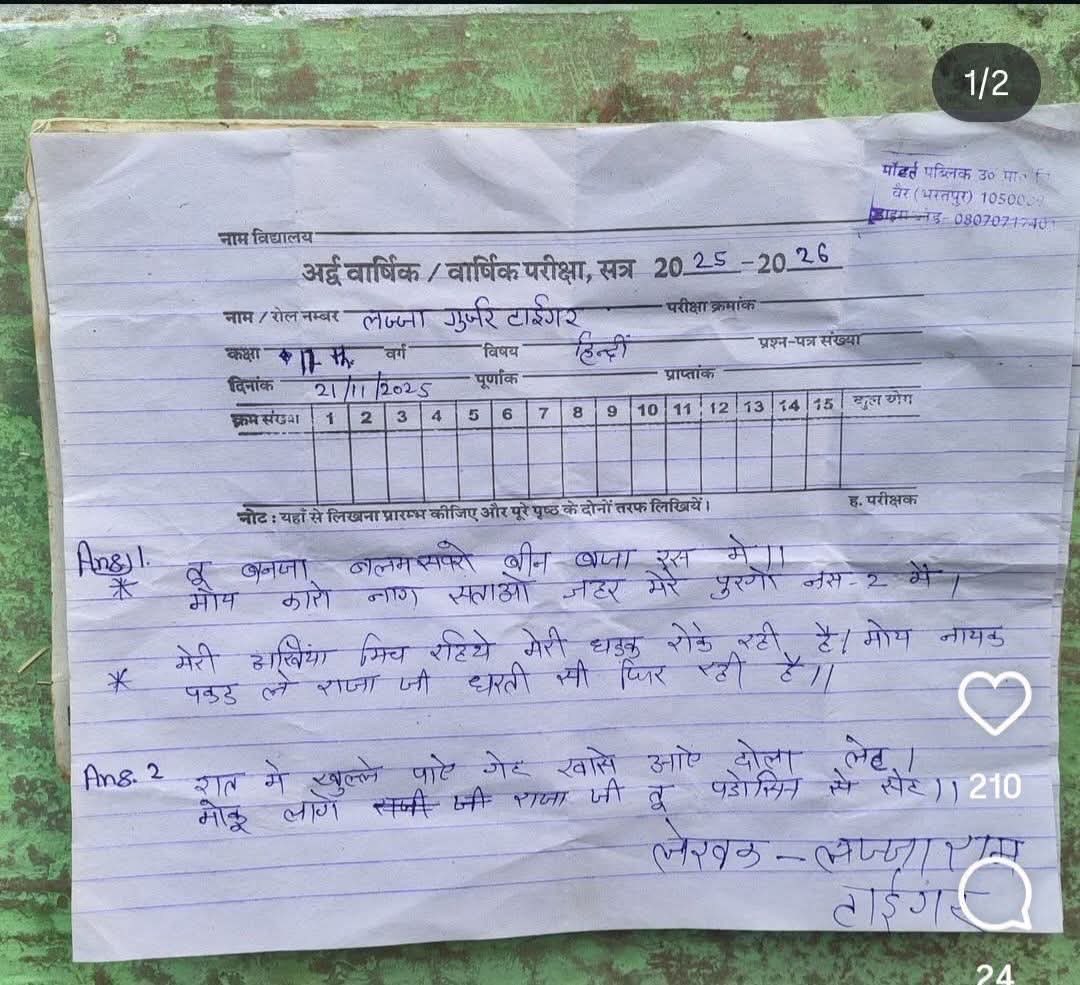 1/2
पब्लिक उ०
वैर (भरतपुर) 10500
नाम विद्यालय
अर्द्व वार्षिक / वार्षिक परीक्षा, सत्र 2025 - 2026
नाम / रोल नम्बर लज्जा गुर्जर टाईगर परीक्षा क्रमांक
कक्षा वर्ग विषय हिन्दीं प्रश्न-पत्र संख्या
दिनांक 21/11/2025 पूर्णांक प्राप्तांक
क्रम संख्या 1 2 3 4 5 6 7 8 9 10 11 12 13 14 15 कुल योग
नोट : यहाँ से लिखना प्रारम्भ कीजिए और पूरे पृष्ठ के दोनों तरफ लिखियें। ह. परीक्षक
Ans)1. तू बनजा बलम सपेरो बीन बजा रस में।।
* मोय कारो नाग सताओ जहर मेरे पुरगो नस-2 में।
मेरी अखियां मिच रहिये मेरी धड़कू रोके रही है। मोय नायक
* पकड ले राजा जी धरती सी फिर रही है।।
Ans. 2 रात मे खुल्ले पाऐ गेट खासे आऐ ढोला लेट।
मोकू लागे राजा जी तू पडोसिन से सेट।।
210
लेखक - लज्जा राम
टाईगर
24